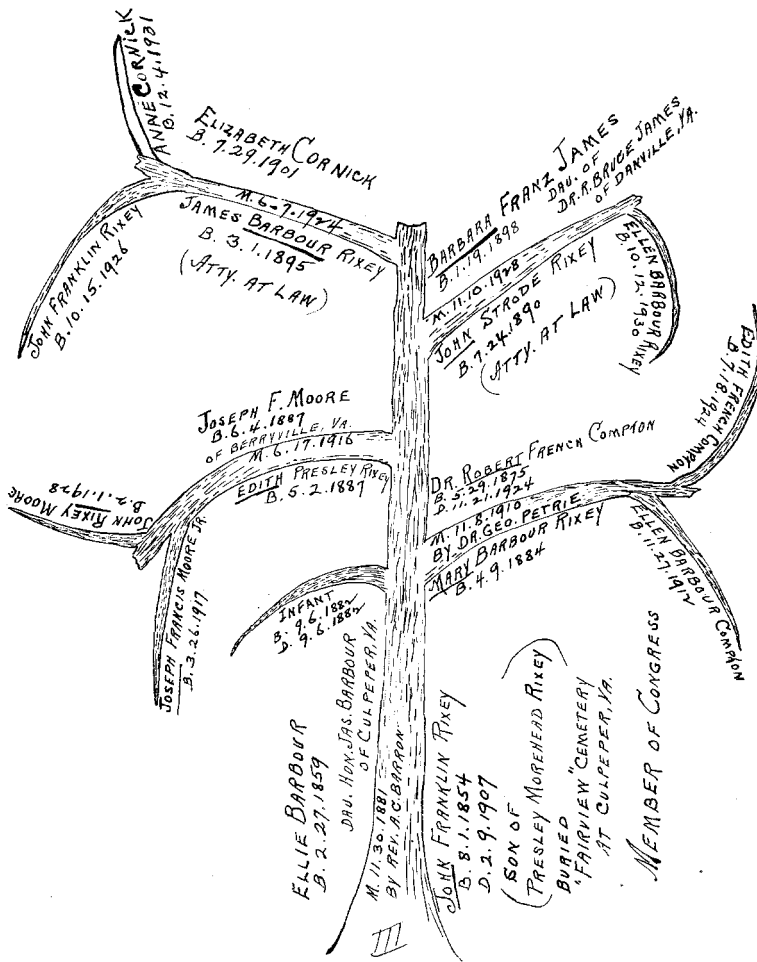 ANNE CORNICK
B. 12.4.1931
ELIZABETH CORNICK
B. 7.29.1901
M. 6-7.1924
JAMES BARBOUR RIXEY
B. 3.1.1895
(ATTY. AT LAW)
JOHN FRANKLIN RIXEY
B. 10.15.1926
BARBARA FRANZ JAMES
DAU. OF
DR. R. BRUCE JAMES
OF DANVILLE, VA.
B. 1.19.1898
M. 11.10.1928
JOHN STRODE RIXEY
B. 7.24.1890
(ATTY. AT LAW)
ELLEN BARBOUR RIXEY
B. 10.12.1930
JOSEPH F. MOORE
B. 6.4.1887
OF BERRYVILLE, VA.
M. 6.17.1916
EDITH PRESLEY RIXEY
B. 5.2.1887
JOHN RIXEY MOORE
B. 2.1.1928
JOSEPH FRANCIS MOORE JR.
B. 3.26.1917
DR. ROBERT FRENCH COMPTON
B. 5.29.1875
D. 11.21.1924
M. 11.8.1910
BY DR. GEO. PETRIE
MARY BARBOUR RIXEY
B. 4.9.1884
EDITH FRENCH COMPTON
B. 7.18.1924
ELLEN BARBOUR COMPTON
B. 11.27.1912
INFANT
B. 9.6.1882
D. 9.6.1882
ELLIE BARBOUR
B. 2.27.1859
DAU. HON. JAS. BARBOUR
OF CULPEPER, VA.
M. 11.30.1881
BY REV. A.C. BARRON
JOHN FRANKLIN RIXEY
B. 8.1.1854
D. 2.9.1907
(SON OF
PRESLEY MOREHEAD RIXEY)
BURIED
"FAIRVIEW" CEMETERY
AT CULPEPER, VA.
MEMBER OF CONGRESS
III